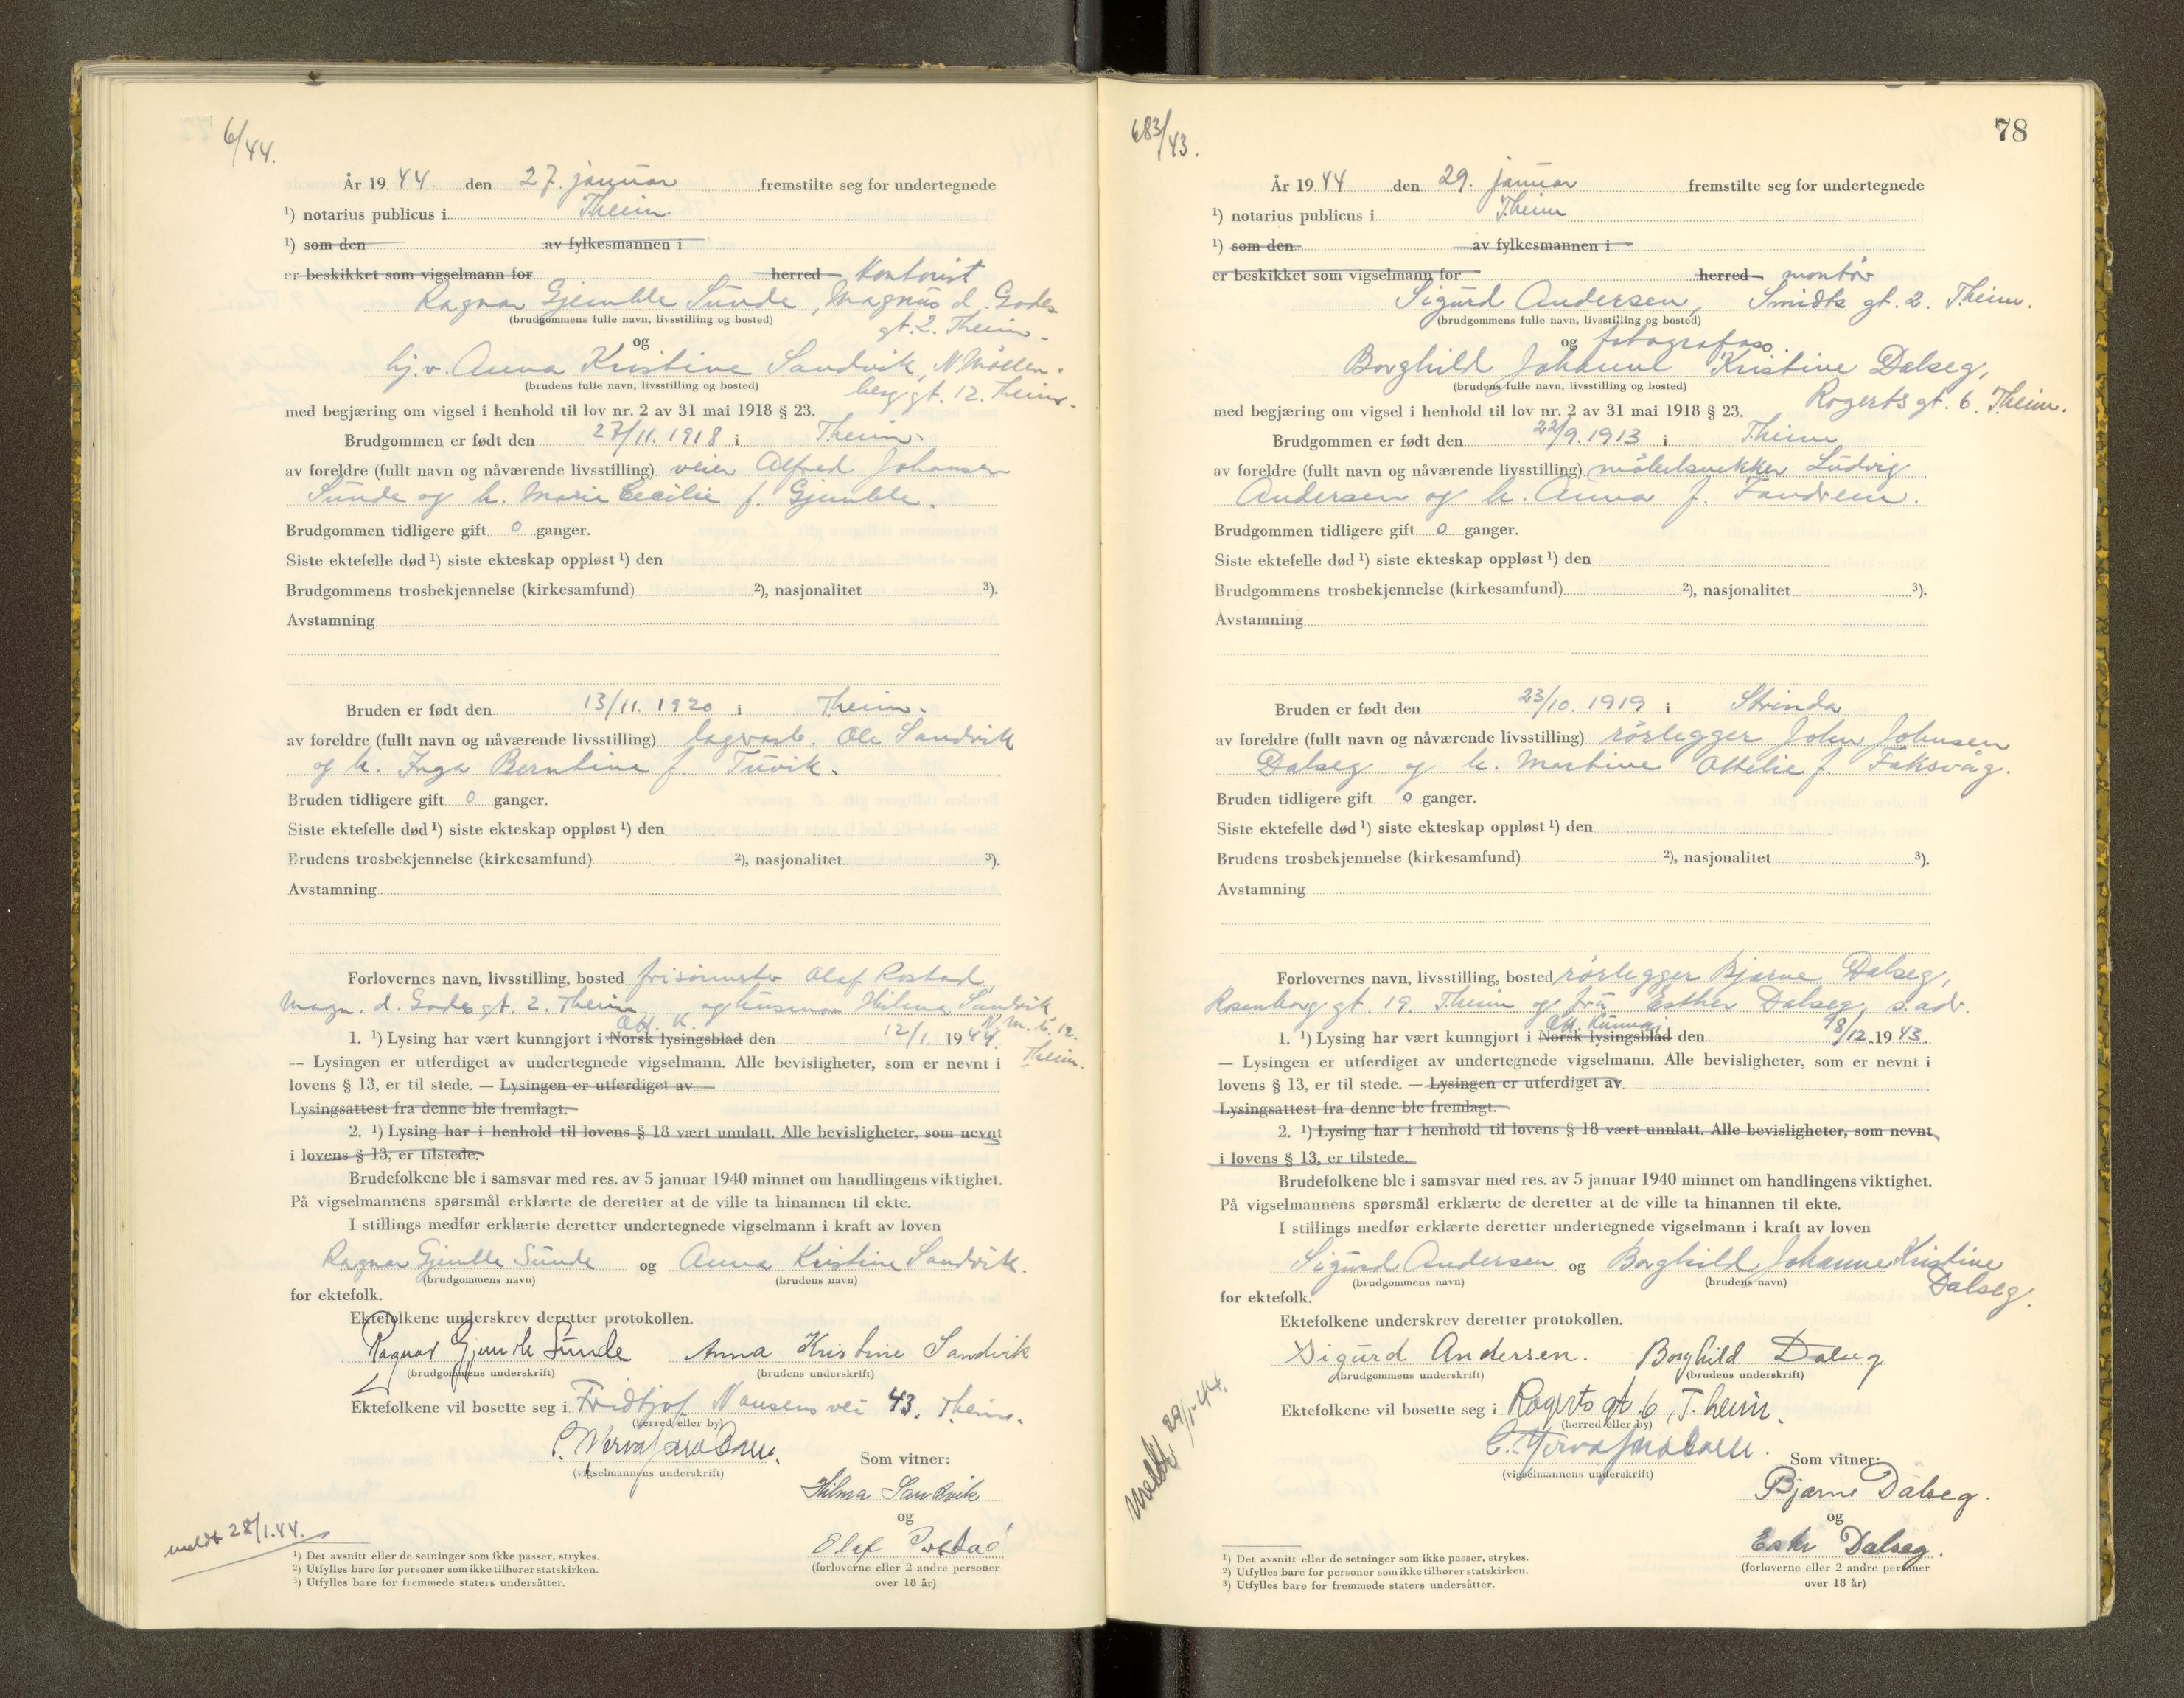 6/44.
År 1944. den 27. januar fremstilte seg for undertegnede
¹) notarius publicus i Theim.
¹) som den av fylkesmannen i
er beskikket som vigselmann for herred Kontorist
Ragnar Gjemble Sunde, Magnus d. Godes
(brudgommens fulle navn, livsstilling og bosted)
gt. 2. Theim.
og
hj.v. Anna Kristine Sandvik, N Möllen-
(brudens fulle navn, livsstilling og bosted)
berg gt. 12. Theim.
med begjæring om vigsel i henhold til lov nr. 2 av 31 mai 1918 § 23.
Brudgommen er født den 27/11. 1918 i Theim.
av foreldre (fullt navn og nåværende livsstilling) veier Alfred Johansen
Sunde og h. Marie Cecilie f. Gjemble.
Brudgommen tidligere gift 0 ganger.
Siste ektefelle død ¹) siste ekteskap oppløst ¹) den
Brudgommens trosbekjennelse (kirkesamfund) ²), nasjonalitet ³).
Avstamning
Bruden er født den 13/11. 1920 i Theim.
av foreldre (fullt navn og nåværende livsstilling) lagerarb. Ole Sandvik
og h. Inga Berntine f. Tuvik.
Bruden tidligere gift 0 ganger.
Siste ektefelle død ¹) siste ekteskap oppløst ¹) den
Brudens trosbekjennelse (kirkesamfund) ²), nasjonalitet ³).
Avstamning
Forlovernes navn, livsstilling, bosted frisörmester Olaf Rostad,
Magn. d. Godes gt. 2. Theim og husmor Hilma Sandvik
Off. K. N. M. b. 12.
1. ¹) Lysing har vært kunngjort i Norsk lysingsblad den 12/1. 1944.
Theim.
— Lysingen er utferdiget av undertegnede vigselmann. Alle bevisligheter, som er nevnt i
lovens § 13, er til stede. — Lysingen er utferdiget av
Lysingsattest fra denne ble fremlagt.
2. ¹) Lysing har i henhold til lovens § 18 vært unnlatt. Alle bevisligheter, som nevnt
i lovens § 13, er tilstede.
Brudefolkene ble i samsvar med res. av 5 januar 1940 minnet om handlingens viktighet.
På vigselmannens spørsmål erklærte de deretter at de ville ta hinannen til ekte.
I stillings medfør erklærte deretter undertegnede vigselmann i kraft av loven
Ragnar Gjemble Sunde og Anna Kristine Sandvik.
(brudgommens navn) (brudens navn)
for ektefolk.
Ektefolkene underskrev deretter protokollen.
Ragnar Gjemble Sunde Anna Kristine Sandvik
(brudgommens underskrift) (brudens underskrift)
Ektefolkene vil bosette seg i Fridtjof Nansens vei 43. Theim.
(herred eller by)
(vigselmannens underskrift)
Som vitner:
Hilma Sandvik
og
Olaf Rostad
(forloverne eller 2 andre personer
over 18 år)
meldt 28/1.44.
¹) Det avsnitt eller de setninger som ikke passer, strykes.
²) Utfylles bare for personer som ikke tilhører statskirken.
³) Utfylles bare for fremmede staters undersåtter.
78
683/43.
År 1944 den 29. januar fremstilte seg for undertegnede
¹) notarius publicus i Theim
¹) som den av fylkesmannen i
er beskikket som vigselmann for herred montör
Sigurd Andersen, Smidts gt. 2. Theim.
(brudgommens fulle navn, livsstilling og bosted)
og fotografass.
Borghild Johanne Kristine Dalseg,
(brudens fulle navn, livsstilling og bosted)
Rogerts gt. 6. Theim.
med begjæring om vigsel i henhold til lov nr. 2 av 31 mai 1918 § 23.
Brudgommen er født den 22/9. 1913 i Theim
av foreldre (fullt navn og nåværende livsstilling) möbelsnekker Ludvig
Andersen og h. Anna f. Tandrem.
Brudgommen tidligere gift 0 ganger.
Siste ektefelle død ¹) siste ekteskap oppløst ¹) den
Brudgommens trosbekjennelse (kirkesamfund) ²), nasjonalitet ³).
Avstamning
Bruden er født den 23/10. 1919 i Strinda
av foreldre (fullt navn og nåværende livsstilling) rörlegger John Johnsen
Dalseg og h. Martine Ottelie f. Faksvåg.
Bruden tidligere gift 0 ganger.
Siste ektefelle død ¹) siste ekteskap oppløst ¹) den
Brudens trosbekjennelse (kirkesamfund) ²), nasjonalitet ³).
Avstamning
Forlovernes navn, livsstilling, bosted rörlegger Bjarne Dalseg,
Rosenborg gt. 19. Theim og fru Esther Dalseg, s. adr.
Off. Kunngj.
1. ¹) Lysing har vært kunngjort i Norsk lysingsblad den 8/12. 1943.
— Lysingen er utferdiget av undertegnede vigselmann. Alle bevisligheter, som er nevnt i
lovens § 13, er til stede. — Lysingen er utferdiget av
Lysingsattest fra denne ble fremlagt.
2. ¹) Lysing har i henhold til lovens § 18 vært unnlatt. Alle bevisligheter, som nevnt
i lovens § 13, er tilstede.
Brudefolkene ble i samsvar med res. av 5 januar 1940 minnet om handlingens viktighet.
På vigselmannens spørsmål erklærte de deretter at de ville ta hinannen til ekte.
I stillings medfør erklærte deretter undertegnede vigselmann i kraft av loven
Sigurd Andersen og Borghild Johanne Kristine
(brudgommens navn) (brudens navn)
Dalseg.
for ektefolk.
Ektefolkene underskrev deretter protokollen.
Sigurd Andersen. Borghild Dalseg
(brudgommens underskrift) (brudens underskrift)
Ektefolkene vil bosette seg i Rogerts gt. 6, T.heim.
(herred eller by)
(vigselmannens underskrift)
Som vitner:
Bjarne Dalseg.
og
Ester Dalseg.
(forloverne eller 2 andre personer
over 18 år)
Meldt 29/1-44.
¹) Det avsnitt eller de setninger som ikke passer, strykes.
²) Utfylles bare for personer som ikke tilhører statskirken.
³) Utfylles bare for fremmede staters undersåtter.